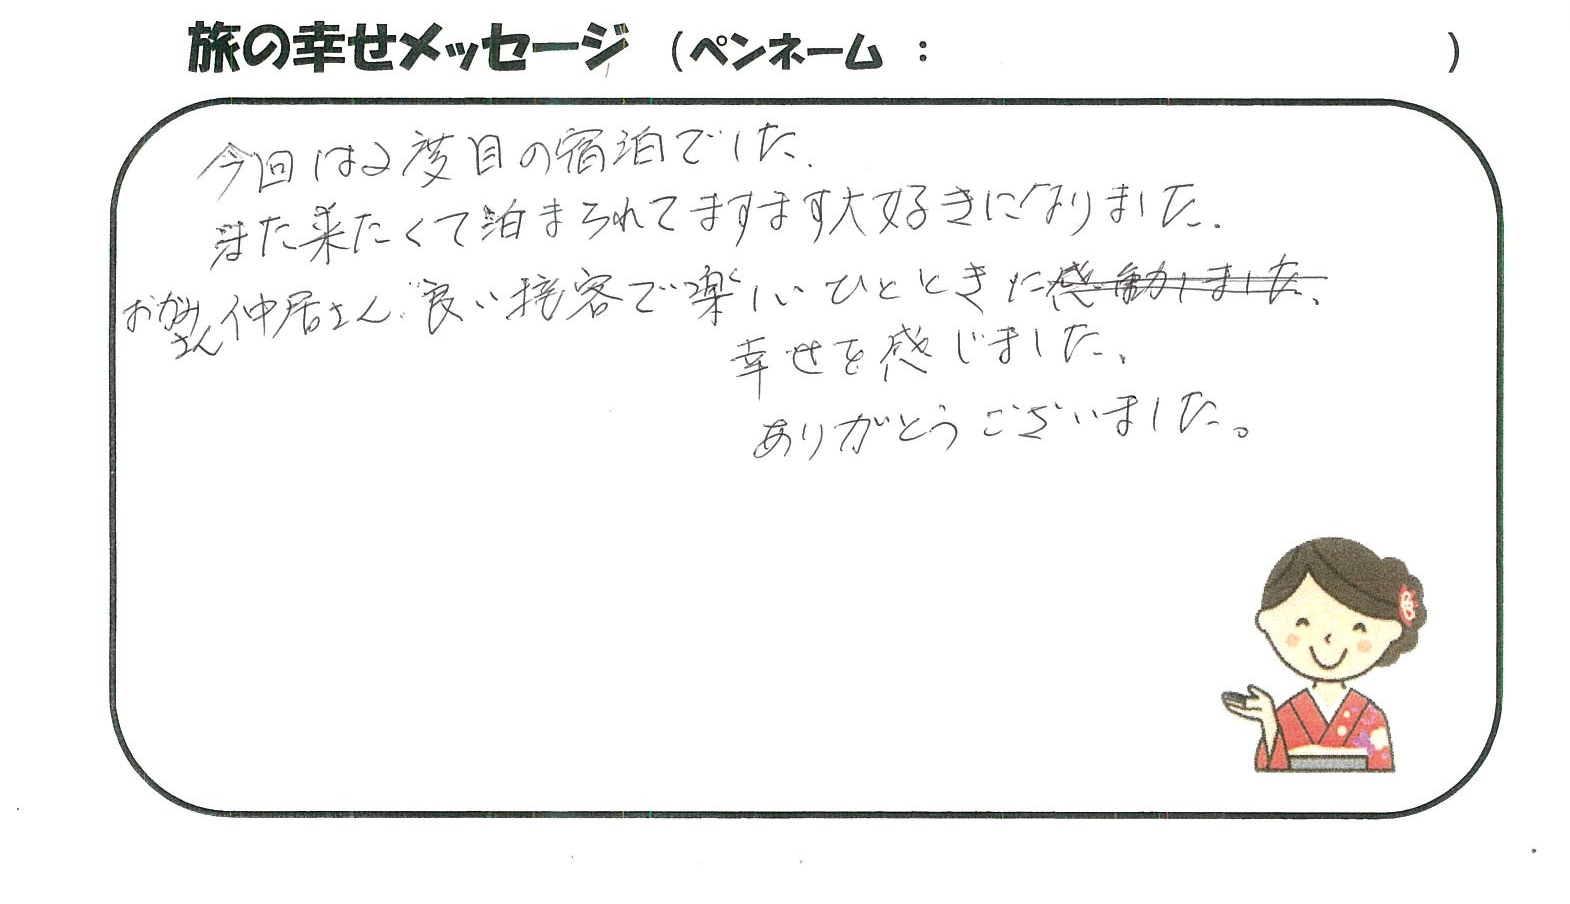 旅の幸せメッセージ （ペンネーム ： ）
今回は2度目の宿泊でした.
また来たくて泊まられてますます大好きになりました.
おかみさん 仲居さん.良い接客で楽しいひとときに感動しました、
幸せを感じました、
ありがとうございました。